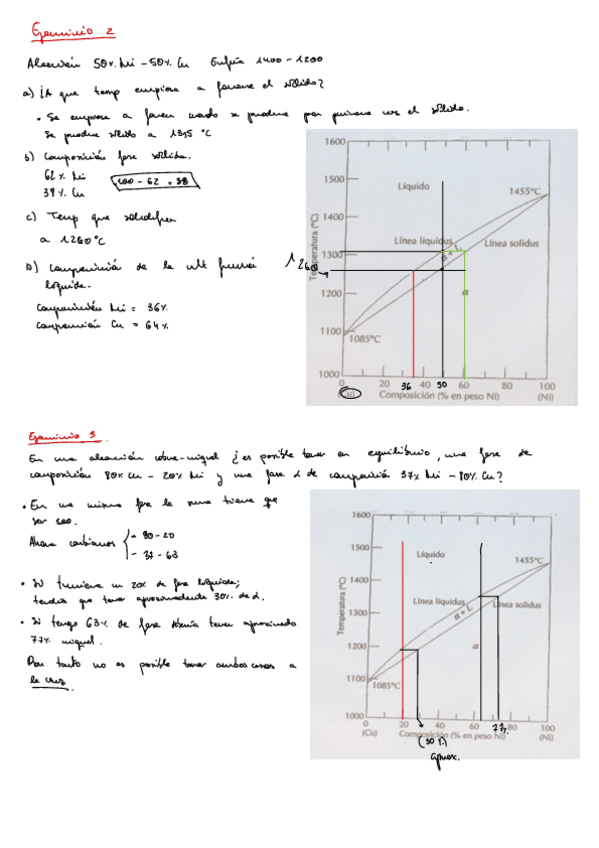 Ejercicio 2
Aleación 50% Ni - 50% Cu Enfría 1400 - 1200
a) ¿A que temp empieza a formarse el sólido?
• Se empieza a formar cuando se produce por primera vez el sólido.
Se produce sólido a °C
b) Composición fase sólida.
62% Ni
38% Cu
100 - 62 = 38
c) Temp que solidifica
a 1260°C
D) Composición de la última fracción
líquida.
Composición Ni = 36%
Composición Cu = 64%
1600
1500
1400
1300
1200
1100
1000
Temperatura (°C)
Líquido
1455°C
Línea liquidus
α + L
Línea solidus
α
1085°C
1260
0 20 36 40 50 60 80 100
(Cu) Composición (% en peso Ni) (Ni)
Ejercicio 3
En una aleación cobre-níquel ¿es posible tener en equilibrio, una fase de
composición 80% Cu - 20% Ni y una fase α de composición 37% Ni - % Cu?
• En una misma fase la suma tiene que
ser 100.
Ahora cambiamos - 80-20
- 37-63
• Si tuviera un 20% de fase líquida;
tendría que tener aproximadamente 30% de α.
• Si tengo 63% de fase tener aproximado
77% níquel.
Por tanto no es posible tener ambas cosas a
la vez.
1600
1500
1400
1300
1200
1100
1000
Temperatura (°C)
Líquido
1455°C
Línea liquidus
α + L
Línea solidus
α
1085°C
0 20 40 60 77% 80 100
(Cu) Composición (% en peso Ni) (Ni)
(30%)
aprox.